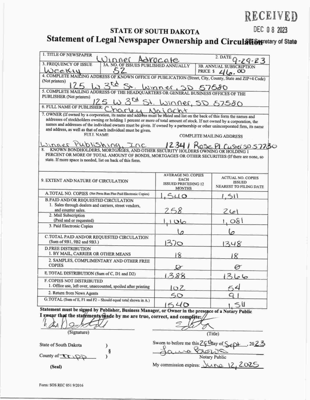 RECEIVED
DEC 08 2023
STATE OF SOUTH DAKOTA
Statement of Legal Newspaper Ownership and Circulation
Secretary of State
1. TITLE OF NEWSPAPER
Winner Advocate
2. DATE
9-29-23
3. FREQUENCY OF ISSUE
Weekly
3A. NO. OF ISSUES PUBLISHED ANNUALLY
52
3B. ANNUAL SUBSCRIPTION
PRICE $ 46.00
4. COMPLETE MAILING ADDRESS OF KNOWN OFFICE OF PUBLICATION (Street, City, County, State and ZIP+4 Code)
(Not printers)
125 W 3rd St. Winner, SD 57580
5. COMPLETE MAILING ADDRESS OF THE HEADQUARTERS OR GENERAL BUSINESS OFFICES OF THE
PUBLISHER (Not printers)
125 W 3rd St Winner, SD 57580
6. FULL NAME OF PUBLISHER
Charley
7. OWNER (If owned by a corporation, its name and address must be stated and list on the back of this form the names and
addresses of stockholders owning or holding 1 percent or more of total amount of stock. If not owned by a corporation, the
names and addresses of the individual owners must be given. If owned by a partnership or other unincorporated firm, its name
and address, as well as that of each individual must be given.
FULL NAME
COMPLETE MAILING ADDRESS
Winner Publishing, Inc
8. KNOWN BONDHOLDERS, MORTGAGES, AND OTHER SECURITY HOLDERS OWNING OR HOLDING 1
PERCENT OR MORE OF TOTAL AMOUNT OF BONDS, MORTGAGES OR OTHER SECURITIES (If there are none, so
state. If more space is needed, list on back of this form.
9. EXTENT AND NATURE OF CIRCULATION
AVERAGE NO. COPIES
EACH
ISSUED PRECEDING 12
MONTHS
ACTUAL NO. COPIES
ISSUED
NEAREST TO FILING DATE
A. TOTAL NO. COPIES
1,540
1,511
B. PAID AND/OR REQUESTED CIRCULATION
1. Sales through dealers and carriers, street vendors,
and counter sales.
258
261
2. Mail Subscription
(Paid and/or requested)
1,106
1,081
3. Paid Electronic Copies
6
6
C. TOTAL PAID AND/OR REQUESTED CIRCULATION
(Sum of 9B1, 9B2 and 9B3.)
1370
1348
D. FREE DISTRIBUTION
1. BY MAIL, CARRIER OR OTHER MEANS
18
18
2. SAMPLES, COMPLIMENTARY AND OTHER FREE
COPIES
E. TOTAL DISTRIBUTION (Sum of C, D1 and D2)
1388
1366
F. COPIES NOT DISTRIBUTED
1. Office use, left over, unaccounted, spoiled after printing
102
54
2. Return from News Agents
50
91
G. TOTAL (Sum of E, F1 and F2 - Should equal total shown in A.)
1540
1,511
Statement must be signed by Publisher, Business Manager, or Owner in the presence of a Notary Public
I swear that the statements made by me are true, correct, and complete:
(Signature)
(Title)
State of South Dakota )
County of Tripp )
(Seal)
Sworn to before me this 29th day of Sept, 2023
Notary Public
My commission expires: June 12, 2025